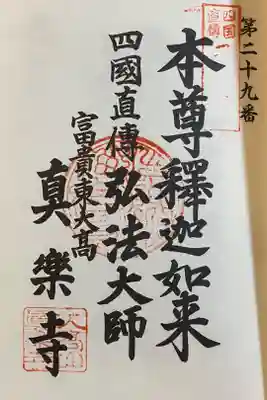 第二十九番
四国
直傳
本尊釋迦如来
四國直傳弘法大師
富貴東大髙
真樂寺